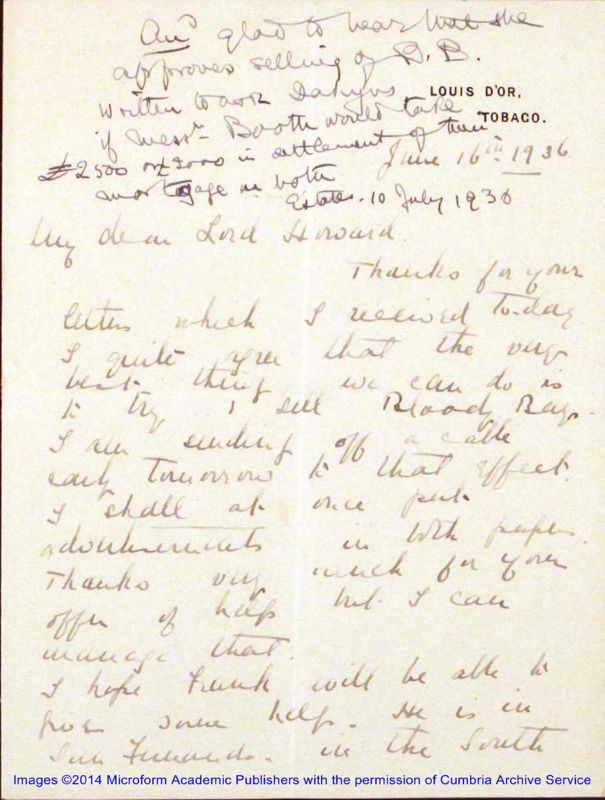 Ansd glad to hear that she
approves selling of B.B.
written to ask
if Messrs Booth would take
£2500 or £3000 in settlement of their
mortgage on both
Estates. 10 July 1936
LOUIS D'OR,
TOBAGO.
June 16th 1936
My dear Lord Howard.
Thanks for your
letters which I received today
I quite agree that the very
best thing we can do is
to try & sell Bloody Bay.
I am sending off a cable
early tomorrow to that effect.
I shall at once put
advertisements in both papers.
Thanks very much for your
offer of help but I can
manage that.
I hope Frank will be able to
give some help. He is in
San Fernando. in the South
Images ©2014 Microform Academic Publishers with the permission of Cumbria Archive Service